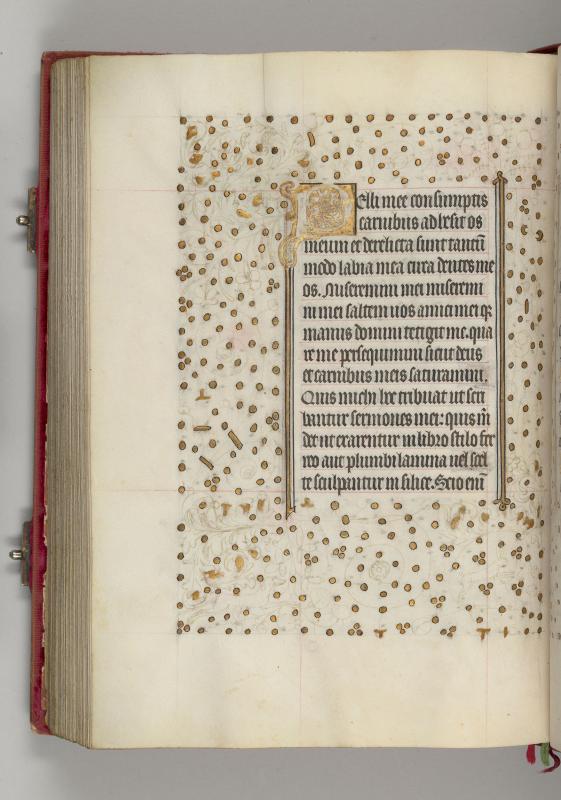 Pelli mee consumptis
carnibus adhesit os
meum et derelicta sunt tantū
modo labia mea circa dentes me
os. Miseremini mei miseremi
ni mei saltem uos amici mei q̄
manus domini tetigit me. qua
re me persequimini sicut deus
et carnibus meis saturamini.
Quis michi hoc tribuat ut scri
bantur sermones mei: quis m̄
det ut exarentur in libro stilo fer
reo aut plumbi lamina uel cel
te sculpantur in silice. Scio eni